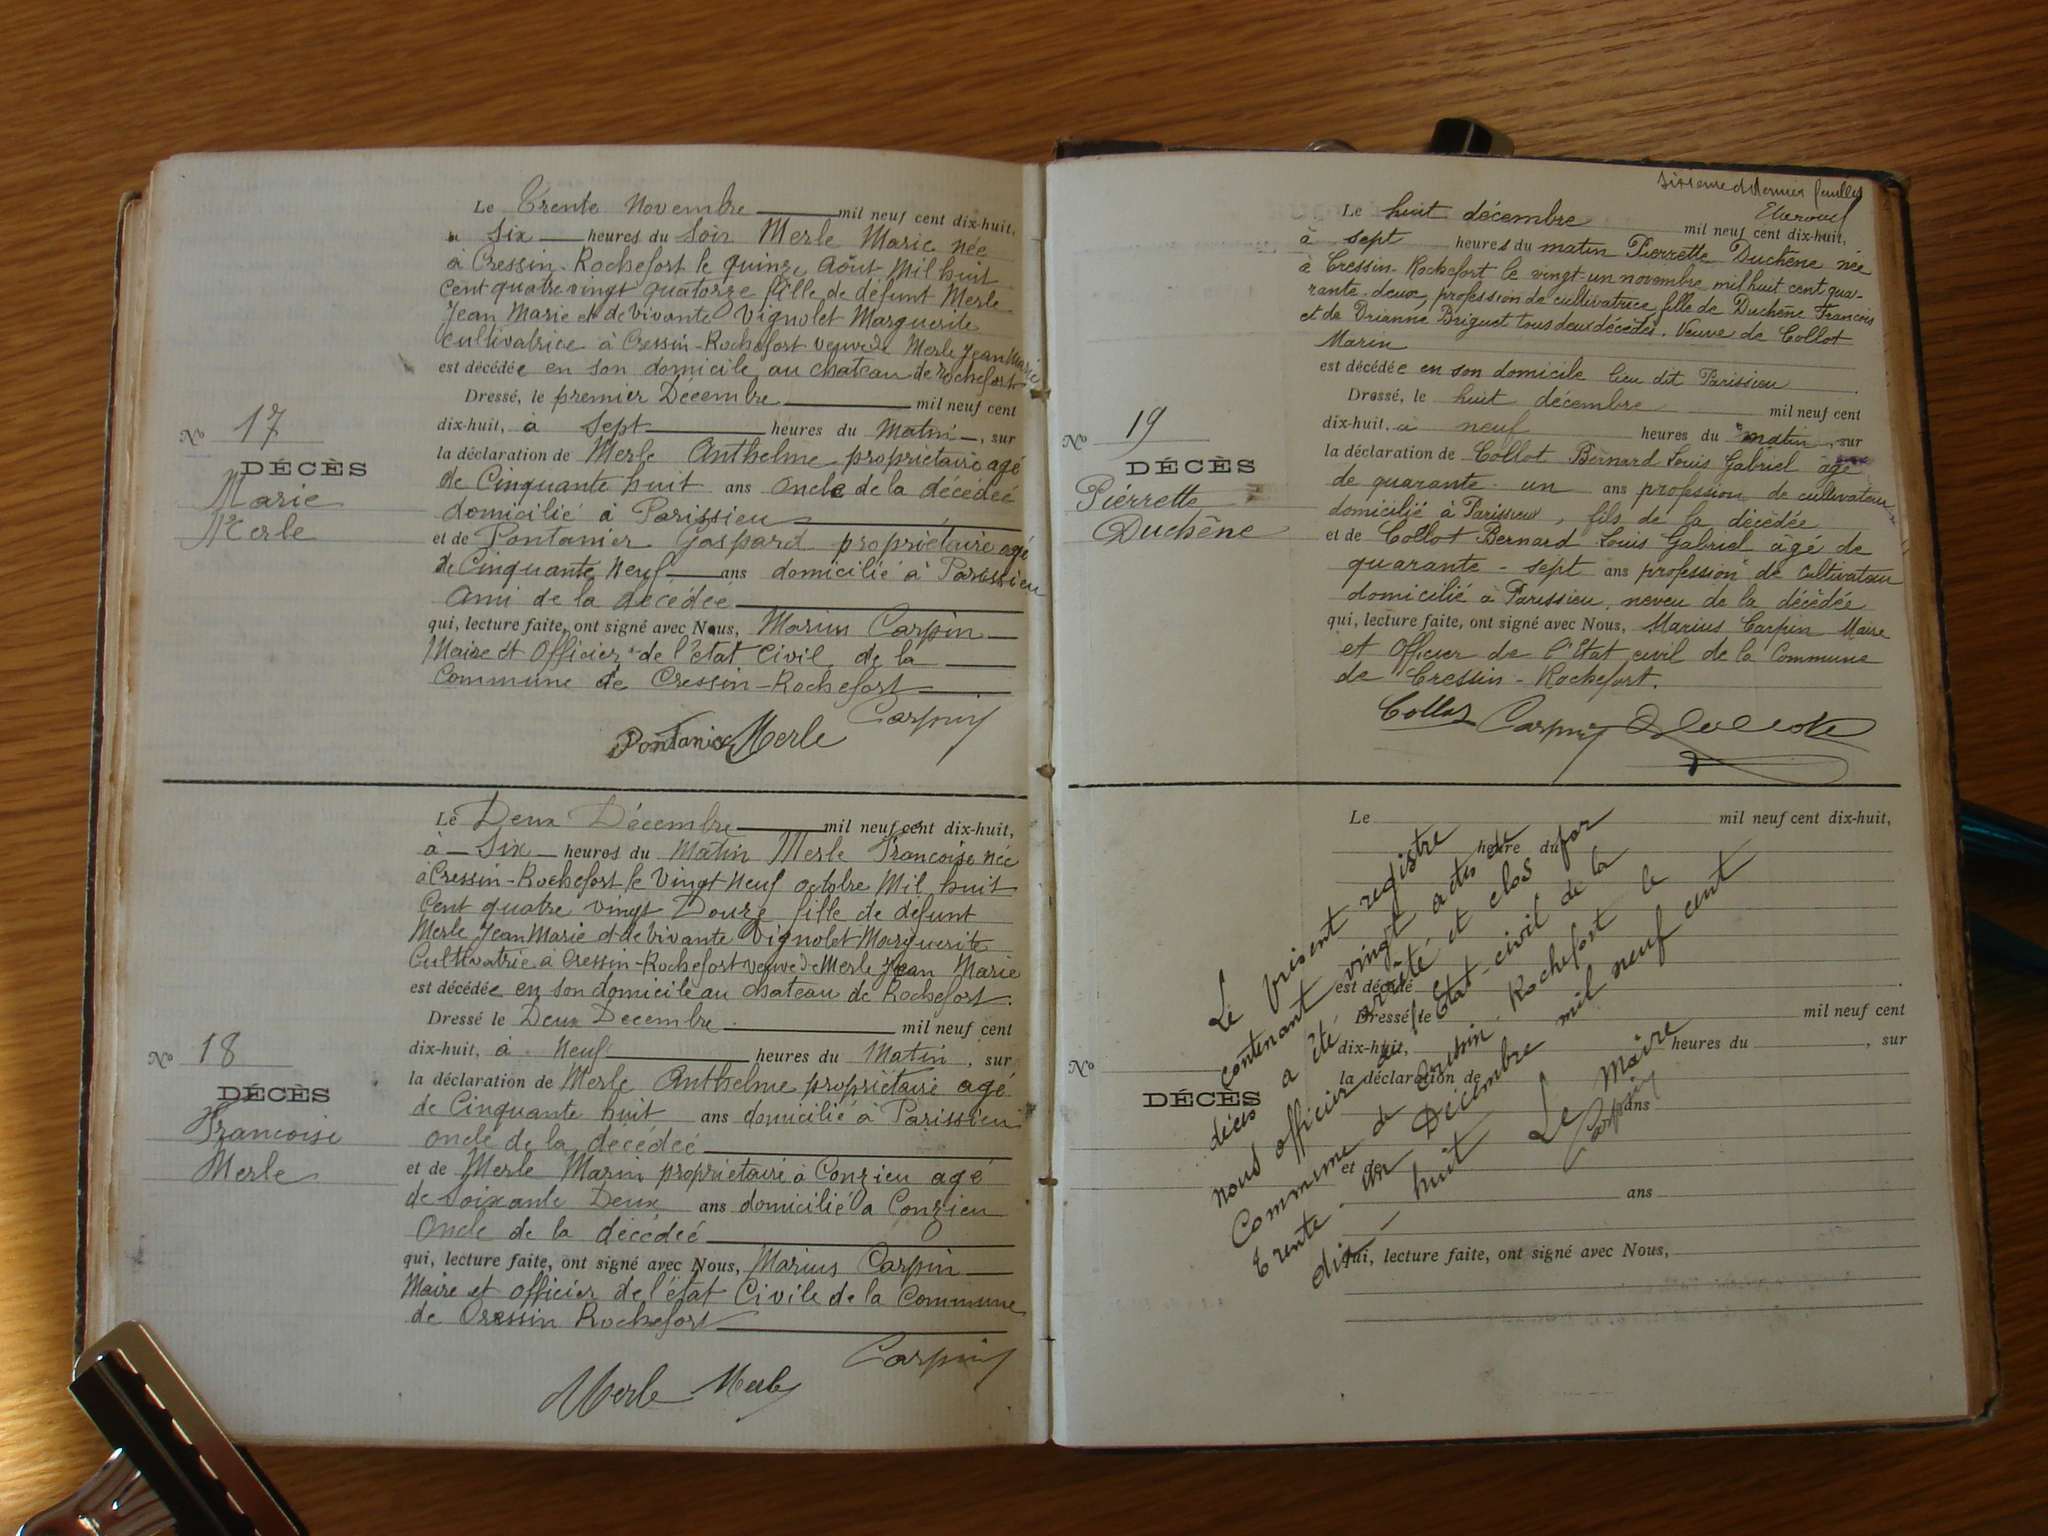 Le Trente Novembre mil neuf cent dix-huit,
à Six heures du Soir Merle Marie née
à Cressin-Rochefort le quinze Août Mil huit
Cent quatre vingt quatorze fille de défunt Merle
Jean Marie et de vivante Vignolet Marguerite
Cultivatrice à Cressin-Rochefort veuve de Merle Jean Marie
est décédée en son domicile au chateau de Rochefort
Dressé, le premier Décembre mil neuf cent
dix-huit, à Sept heures du Matin, sur
la déclaration de Merle Anthelme propriétaire agé
de Cinquante huit ans oncle de la décédeé
domicilié à Parissieu
et de Pontanier Gaspard propriétaire agé
de Cinquante Neuf ans domicilié à Parissieu
Ami de la décédée
qui, lecture faite, ont signé avec Nous, Marius Carpin
Maire et Officier de l'état Civil de la
Commune de Cressin-Rochefort
Carpin
Pontanier Merle
No 17
DÉCÈS
Marie
Merle
Le Deux Décembre mil neuf cent dix-huit,
à Six heures du Matin Merle Francoise née
à Cressin-Rochefort le Vingt Neuf octobre Mil huit
Cent quatre vingt Douze fille de défunt
Merle Jean Marie et de Vivante Vignolet Marguerite
Cultivatrie à Cressin-Rochefort veuve de Merle Jean Marie
est décédée en son domicile au chateau de Rochefort.
Dressé le Deux Decembre mil neuf cent
dix-huit, à Neuf heures du Matin, sur
la déclaration de Merle Anthelme propriétaire agé
de Cinquante huit ans domicilié à Parissieu
oncle de la décédeé
et de Merle Marin propriétaire à Conzieu agé
de Soixante Deux ans domicilié a Conzieu
Oncle de la décédeé
qui, lecture faite, ont signé avec Nous, Marius Carpin
Maire et officier de l'état Civile de la Commune
de Cressin Rochefort
Carpin
Merle Merle
No 18
DÉCÈS
Francoise
Merle
Sixieme et dernier feuillet
Le huit décembre mil neuf cent dix-huit,
à sept heures du matin Pierrette Duchêne née
à Cressin-Rochefort le vingt-un novembre mil huit cent qua-
rante-deux, profession de cultivatrice, fille de Duchêne François
et de Vrianne Briguet tous deux décédés. Veuve de Collot
Marin
est décédée en son domicile lieu dit Parissieu
Dressé, le huit décembre mil neuf cent
dix-huit, à neuf heures du matin, sur
la déclaration de Collot Bernard Louis Gabriel âgé
de quarante-un ans profession de cultivateur
domicilié à Parissieu, fils de la décédée
et de Collot Bernard Louis Gabriel âgé de
quarante-sept ans profession de cultivateur
domicilié à Parissieu, neveu de la décédée
qui, lecture faite, ont signé avec Nous, Marius Carpin Maire
et Officier de l'Etat civil de la Commune
de Cressin-Rochefort.
Collot Carpin
No 19
DÉCÈS
Pierrette
Duchêne
Le mil neuf cent dix-huit,
heure du
est décédé
Dressé le mil neuf cent
dix-huit, heures du , sur
la déclaration de
ans
et de
ans
qui, lecture faite, ont signé avec Nous,
No
DÉCÈS
Le présent registre
contenant vingt actes de
décès a été arrêté et clos par
nous officier de l'Etat-civil de la
Commune de Cressin-Rochefort le
trente-un Décembre mil neuf cent
dix-huit Le Maire
Carpin